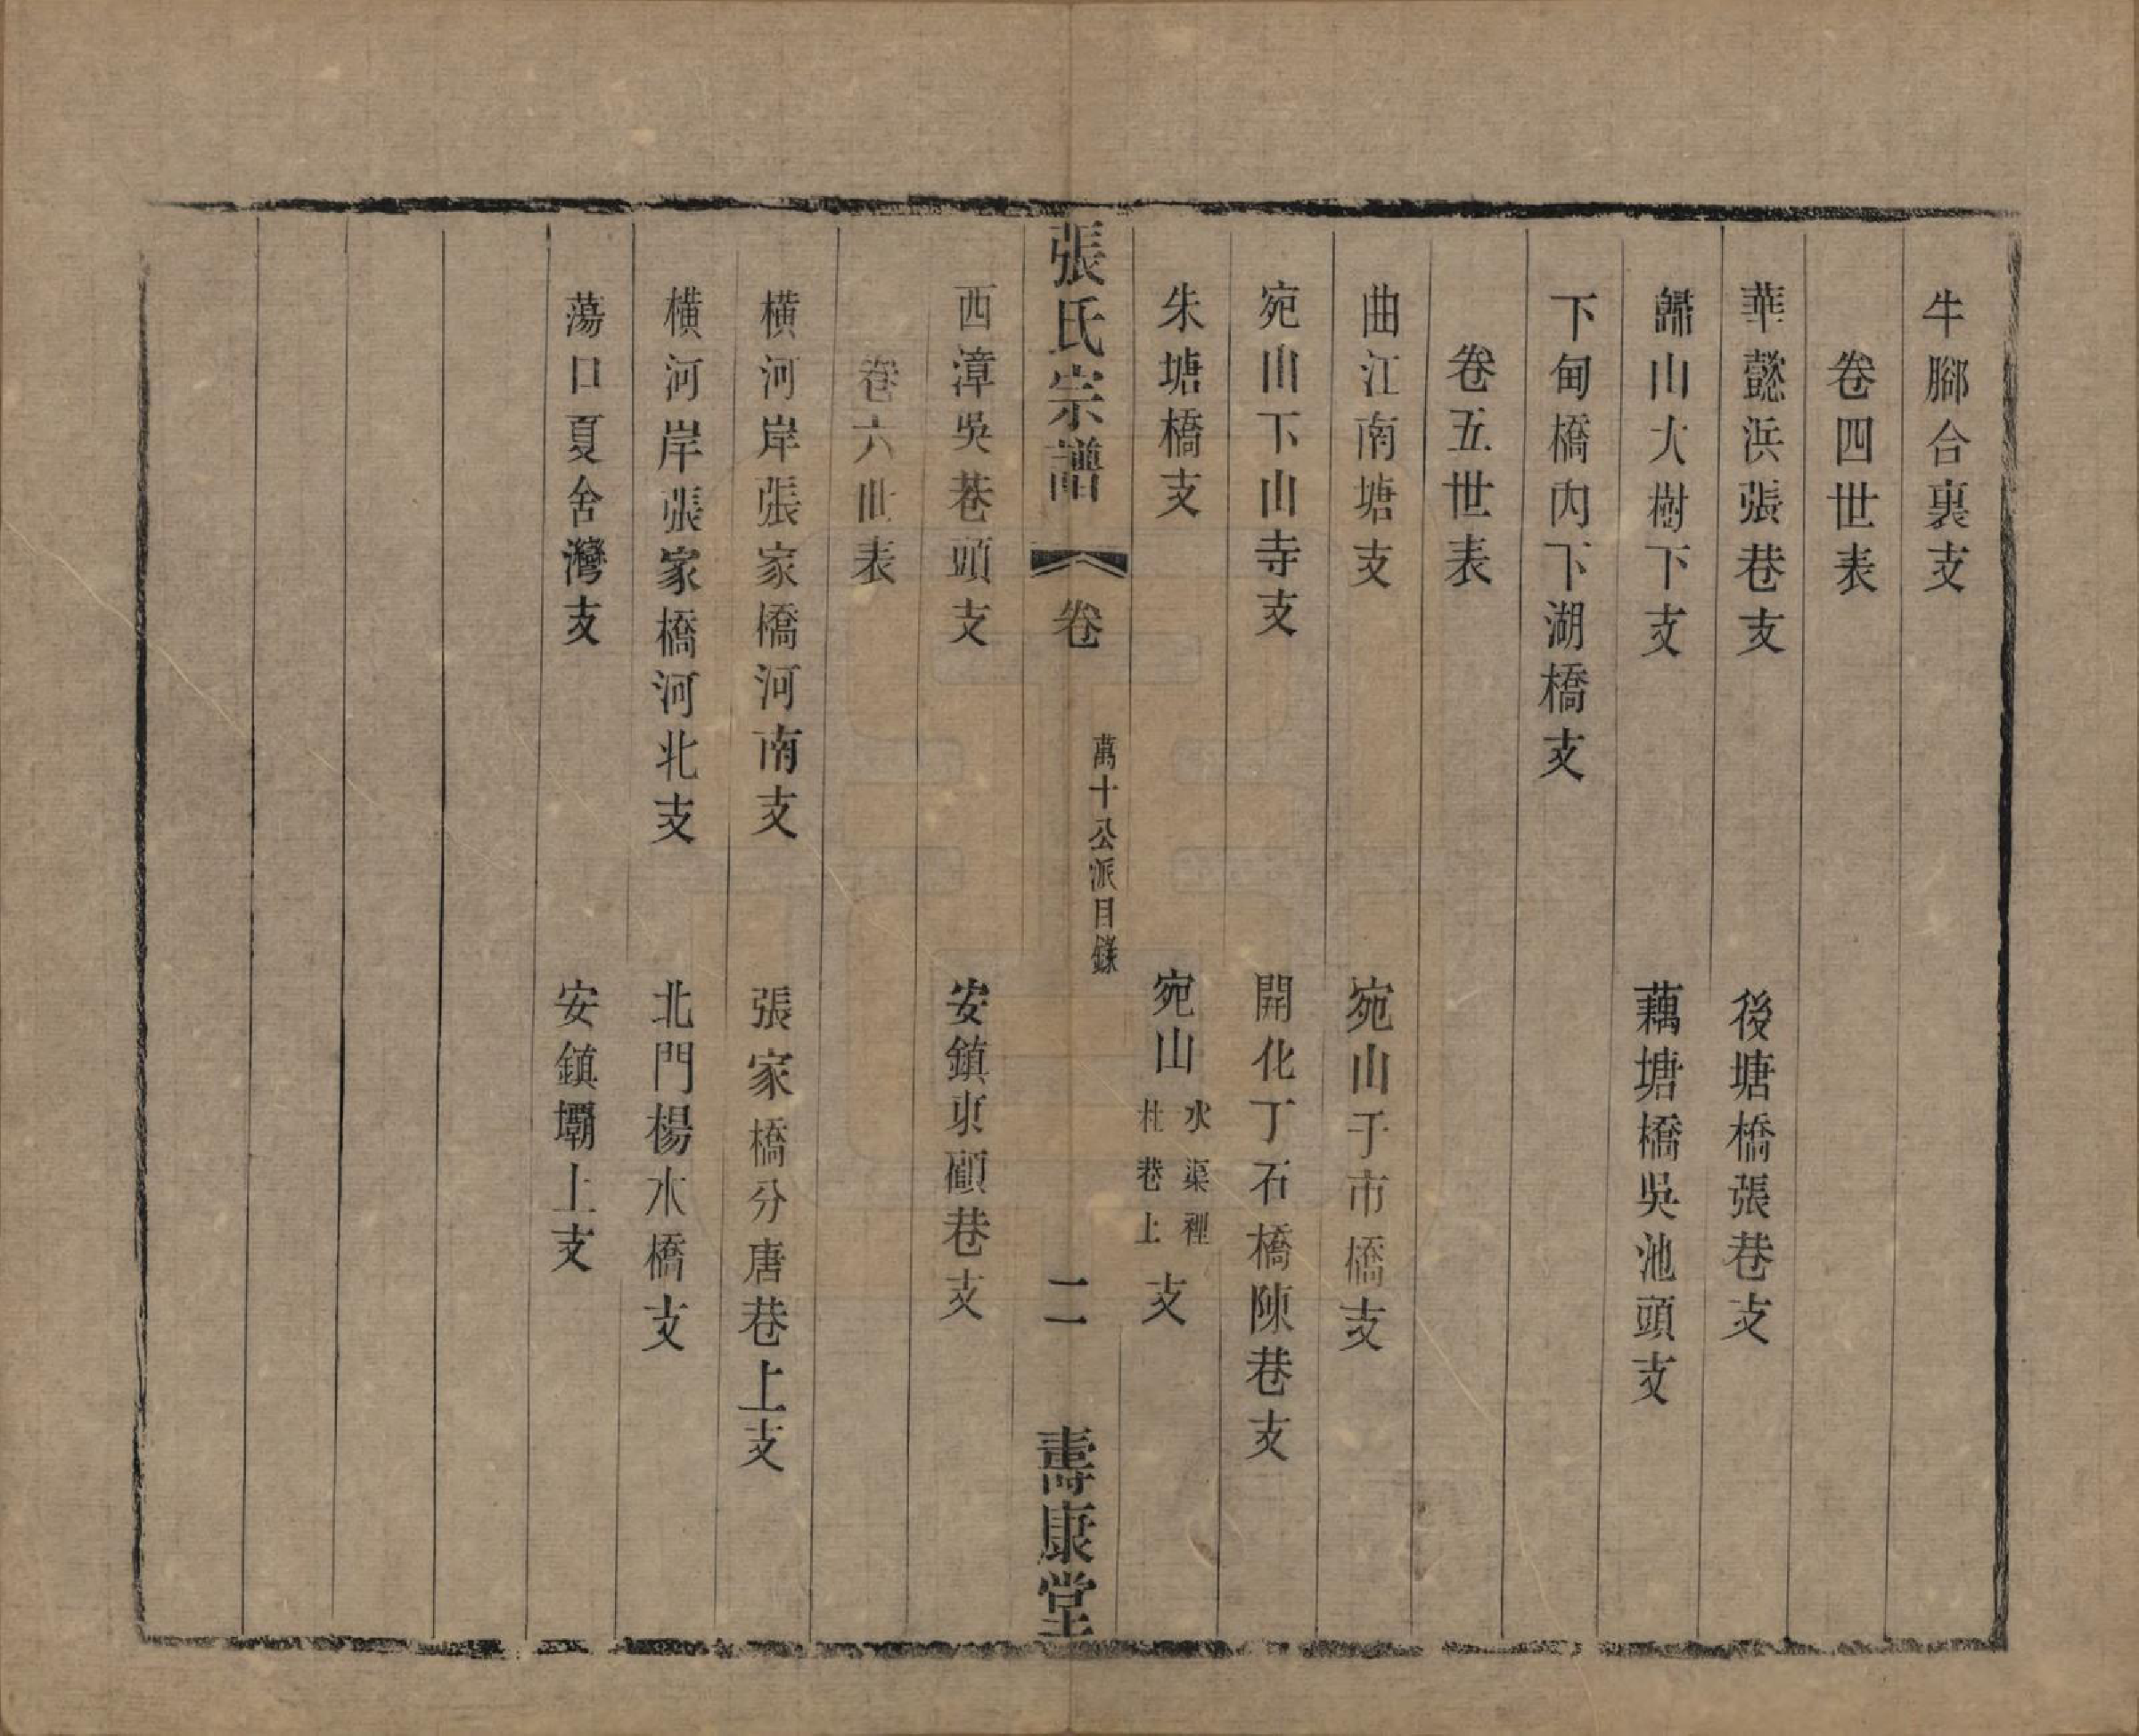 牛腳合裏支
卷四世表
華懿浜張巷支　後塘橋張巷支
歸山大樹下支　藕塘橋吳池頭支
下甸橋內下湖橋支
卷五世表
曲江南塘支　宛山于市橋支
宛山下山寺支　開化丁石橋陳巷支
朱塘橋支　宛山水渠裡杜巷上支
張氏宗譜　卷　萬十公派目錄　二　壽康堂
西漳吳巷頭支　安鎮東顧巷支
卷六世表
橫河岸張家橋河南支　張家橋分唐巷上支
橫河岸張家橋河北支　北門楊水橋支
蕩口夏舍灣支　安鎮壩上支